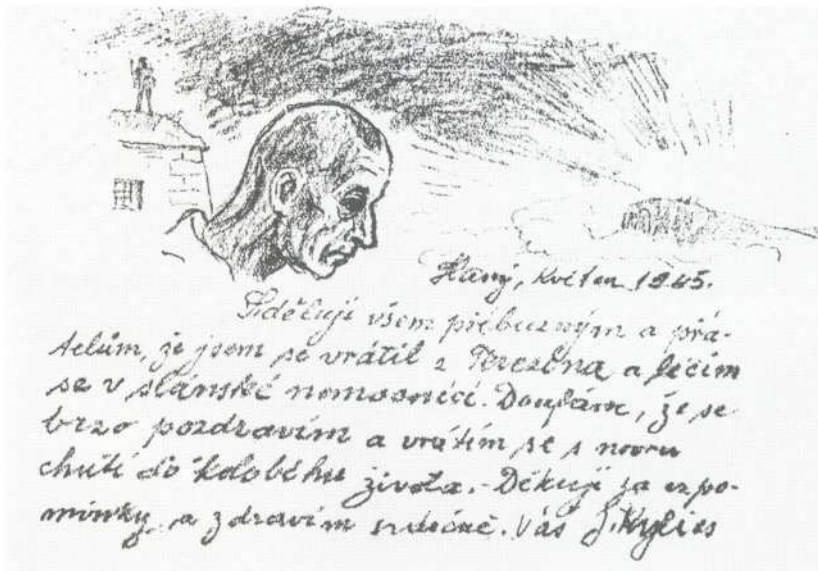 Slaný, květen 1945.
Sděluji všem příbuzným a přá-
telům, že jsem se vrátil z Terezína a léčím
se v slánské nemocnici. Doufám, že se
brzo pozdravím a vrátím se s novou
chutí do koloběhu života. - Děkuji za vzpo-
mínky a zdravím srdečně. Váš J.